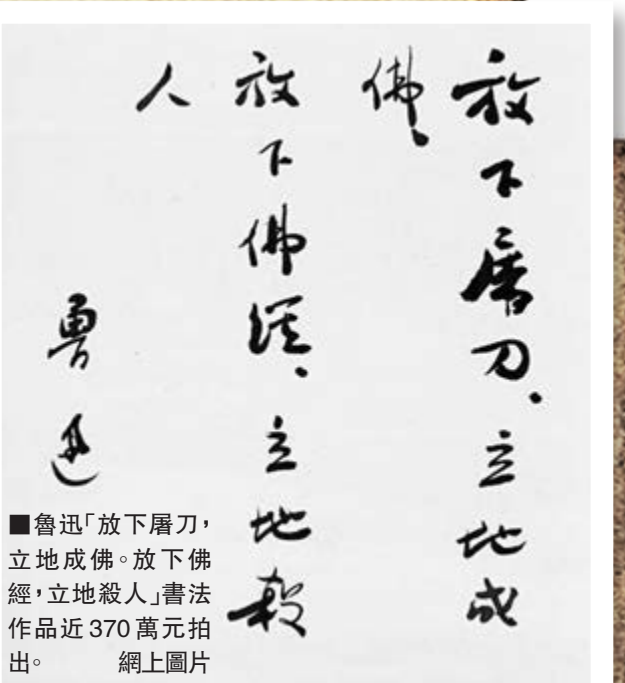 放下屠刀、立地成
佛、
放下佛經、立地殺
人
魯迅
■魯迅「放下屠刀，
立地成佛。放下佛
經，立地殺人」書法
作品近370萬元拍
出。 網上圖片